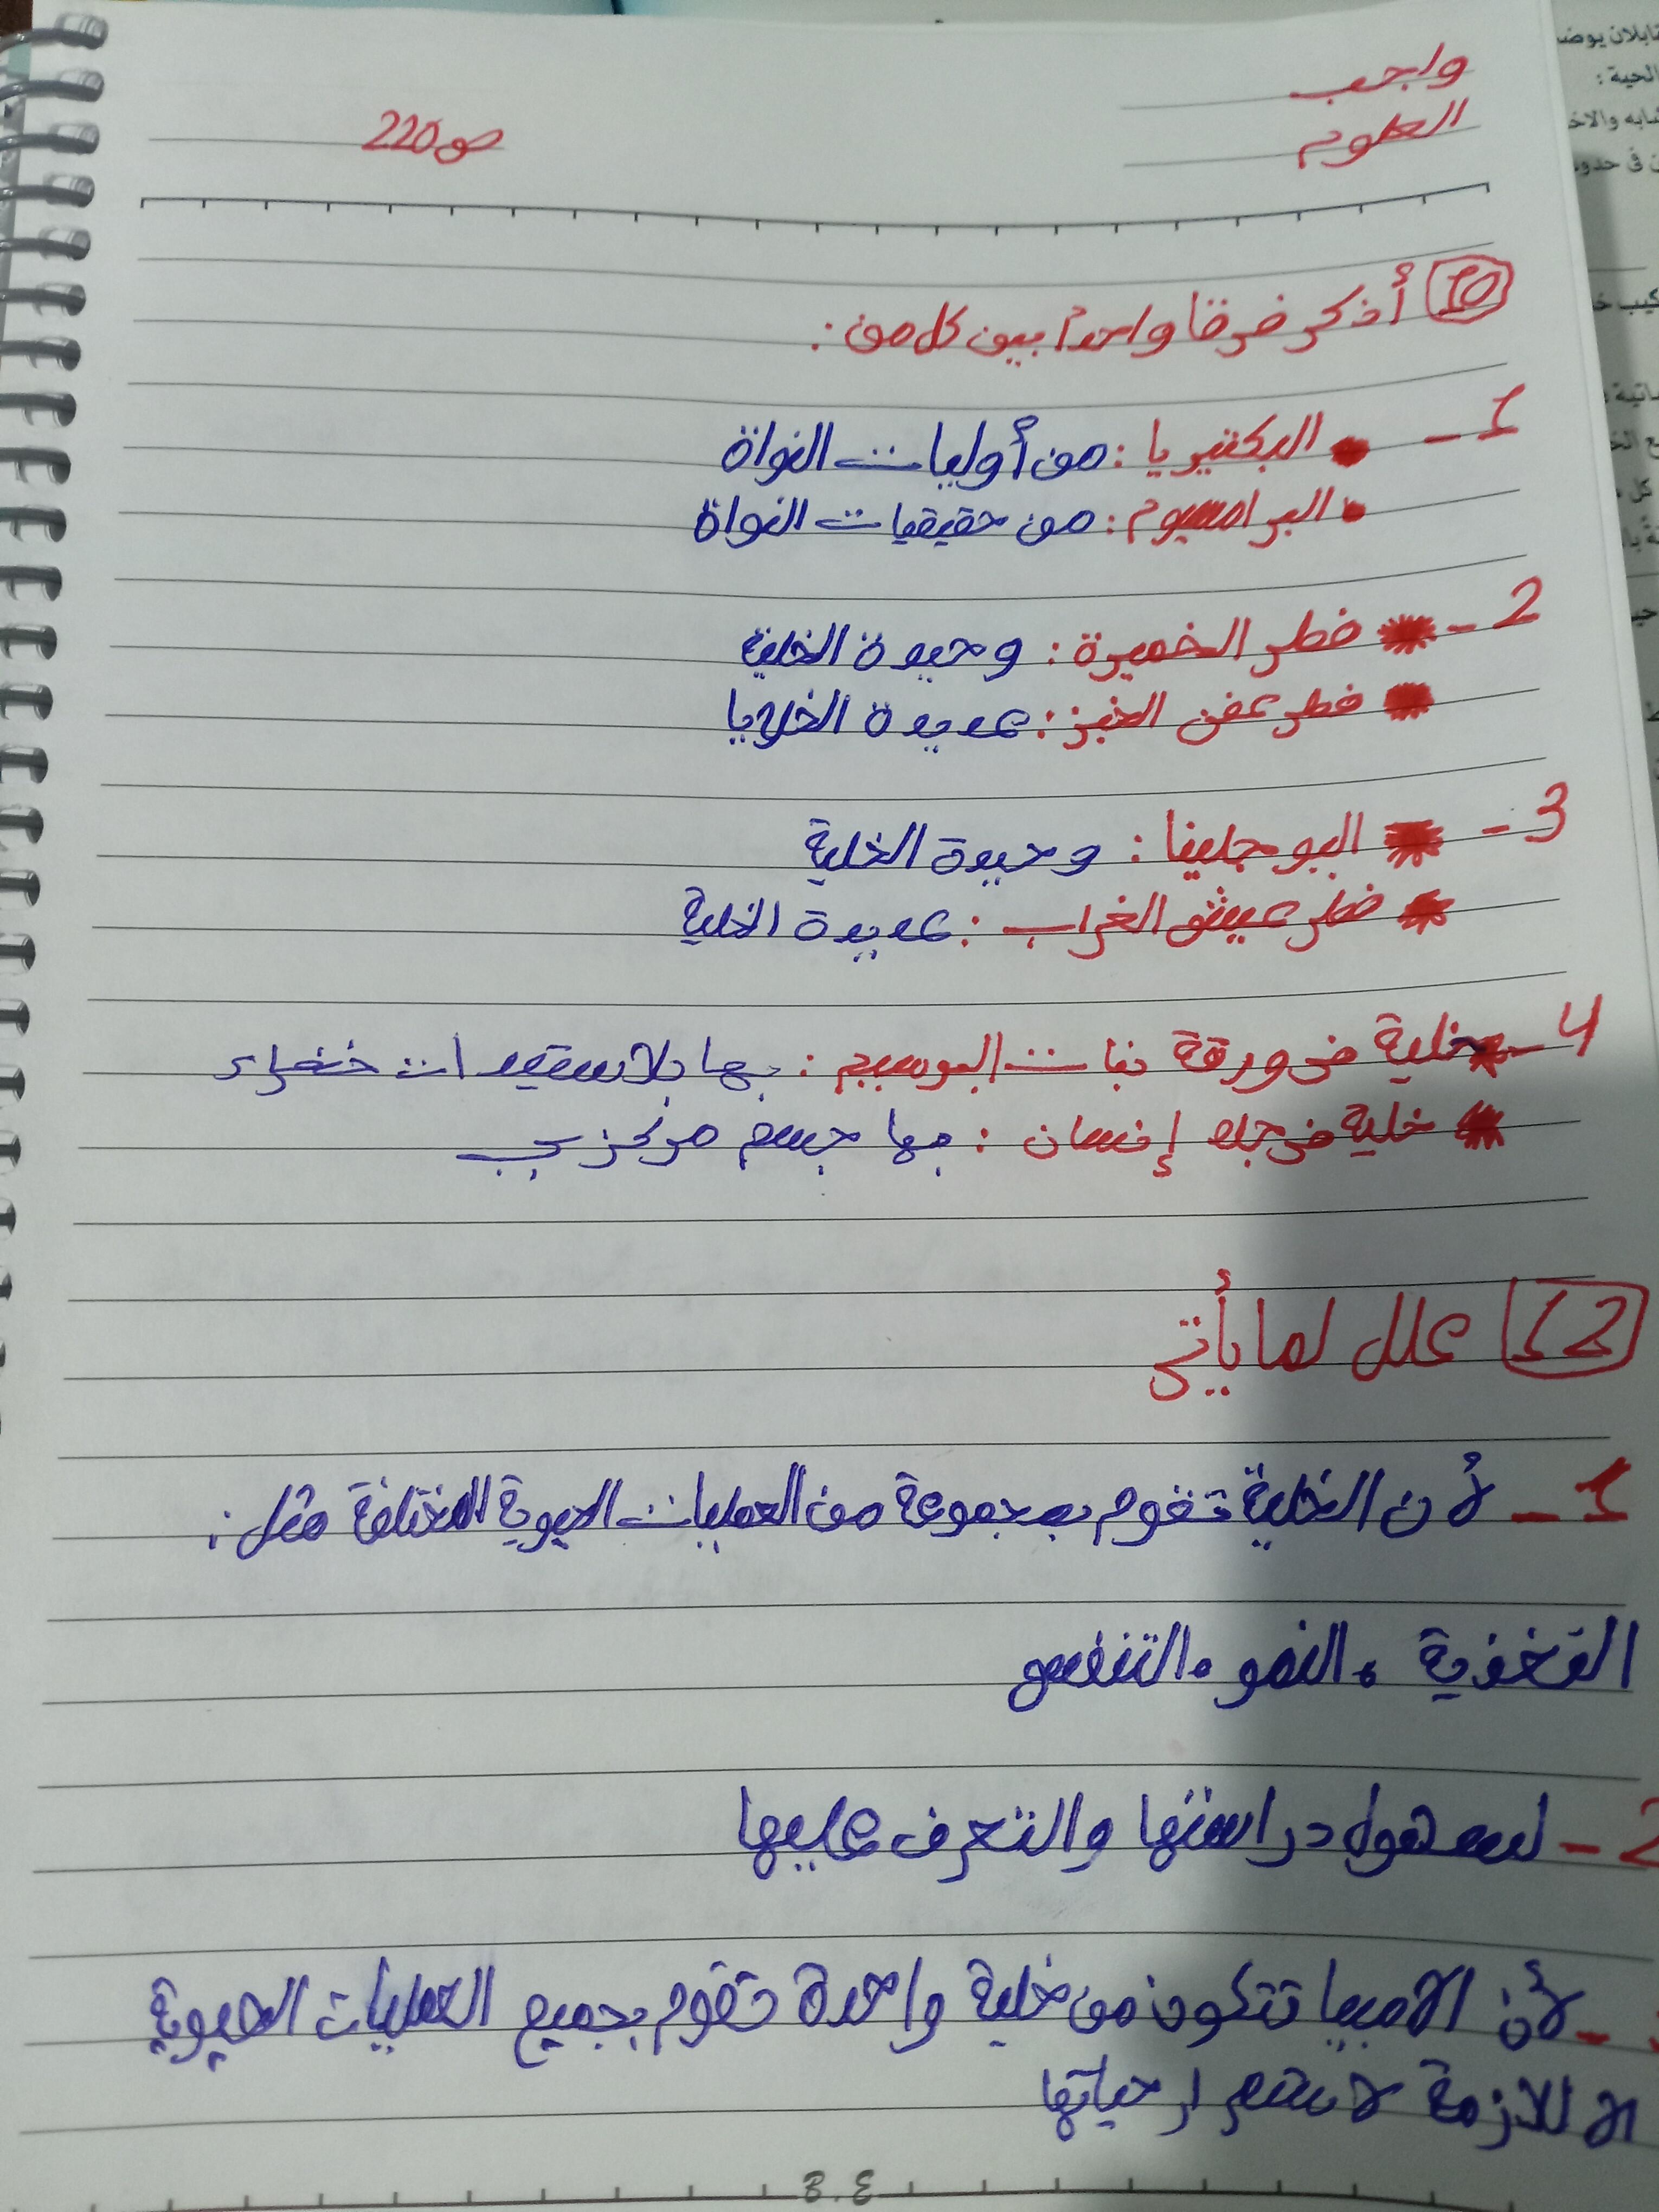 واجب
العلوم
ص220
10 أذكر فرقا واحداً بين كل من :
1 - البكتيريا : من أوليات النواة
البراميسيوم : من حقيقيات النواة
2 - فطر الخميرة : وحيدة الخلية
فطر عفن الخبز : عديدة الخلايا
3 - اليوجلينا : وحيدة الخلية
فطر عيش الغراب : عديدة الخلية
4 - خلية فى ورقة نبات البرسيم : بها بلاستيدات خضراء
خلية فى جلد إنسان : بها جسم مركزى
12 علل لما يأتى
1 - لأن الخلية تقوم بمجموعة من العمليات الحيوية المختلفة مثل :
التغذية ، النمو ، التنفس
2 - لسهول دراستها والتعرف عليها
- لأن الأميبا تتكون من خلية واحدة تقوم بجميع العمليات الحيوية
اللازمة لاستمرار حياتها
B.E
تابلان يوضد
الحية :
شابه والاخ
ن فى حدود